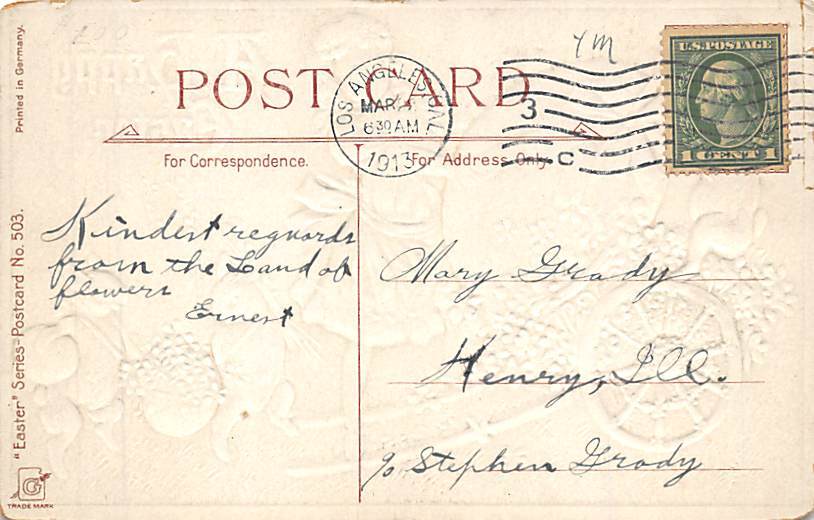 Printed in Germany.
POST CARD
LOS ANGELES, CAL.
MAR
630 AM
1913
3
C
U.S. POSTAGE
1 CENT 1
For Correspondence.
For Address Only.
Kindest reguards
from the Land of
flowers
Ernest
Mary Grady
Henry, Ill.
c/o Stephen Grady
"Easter" Series-Postcard No. 503.
G
TRADE MARK